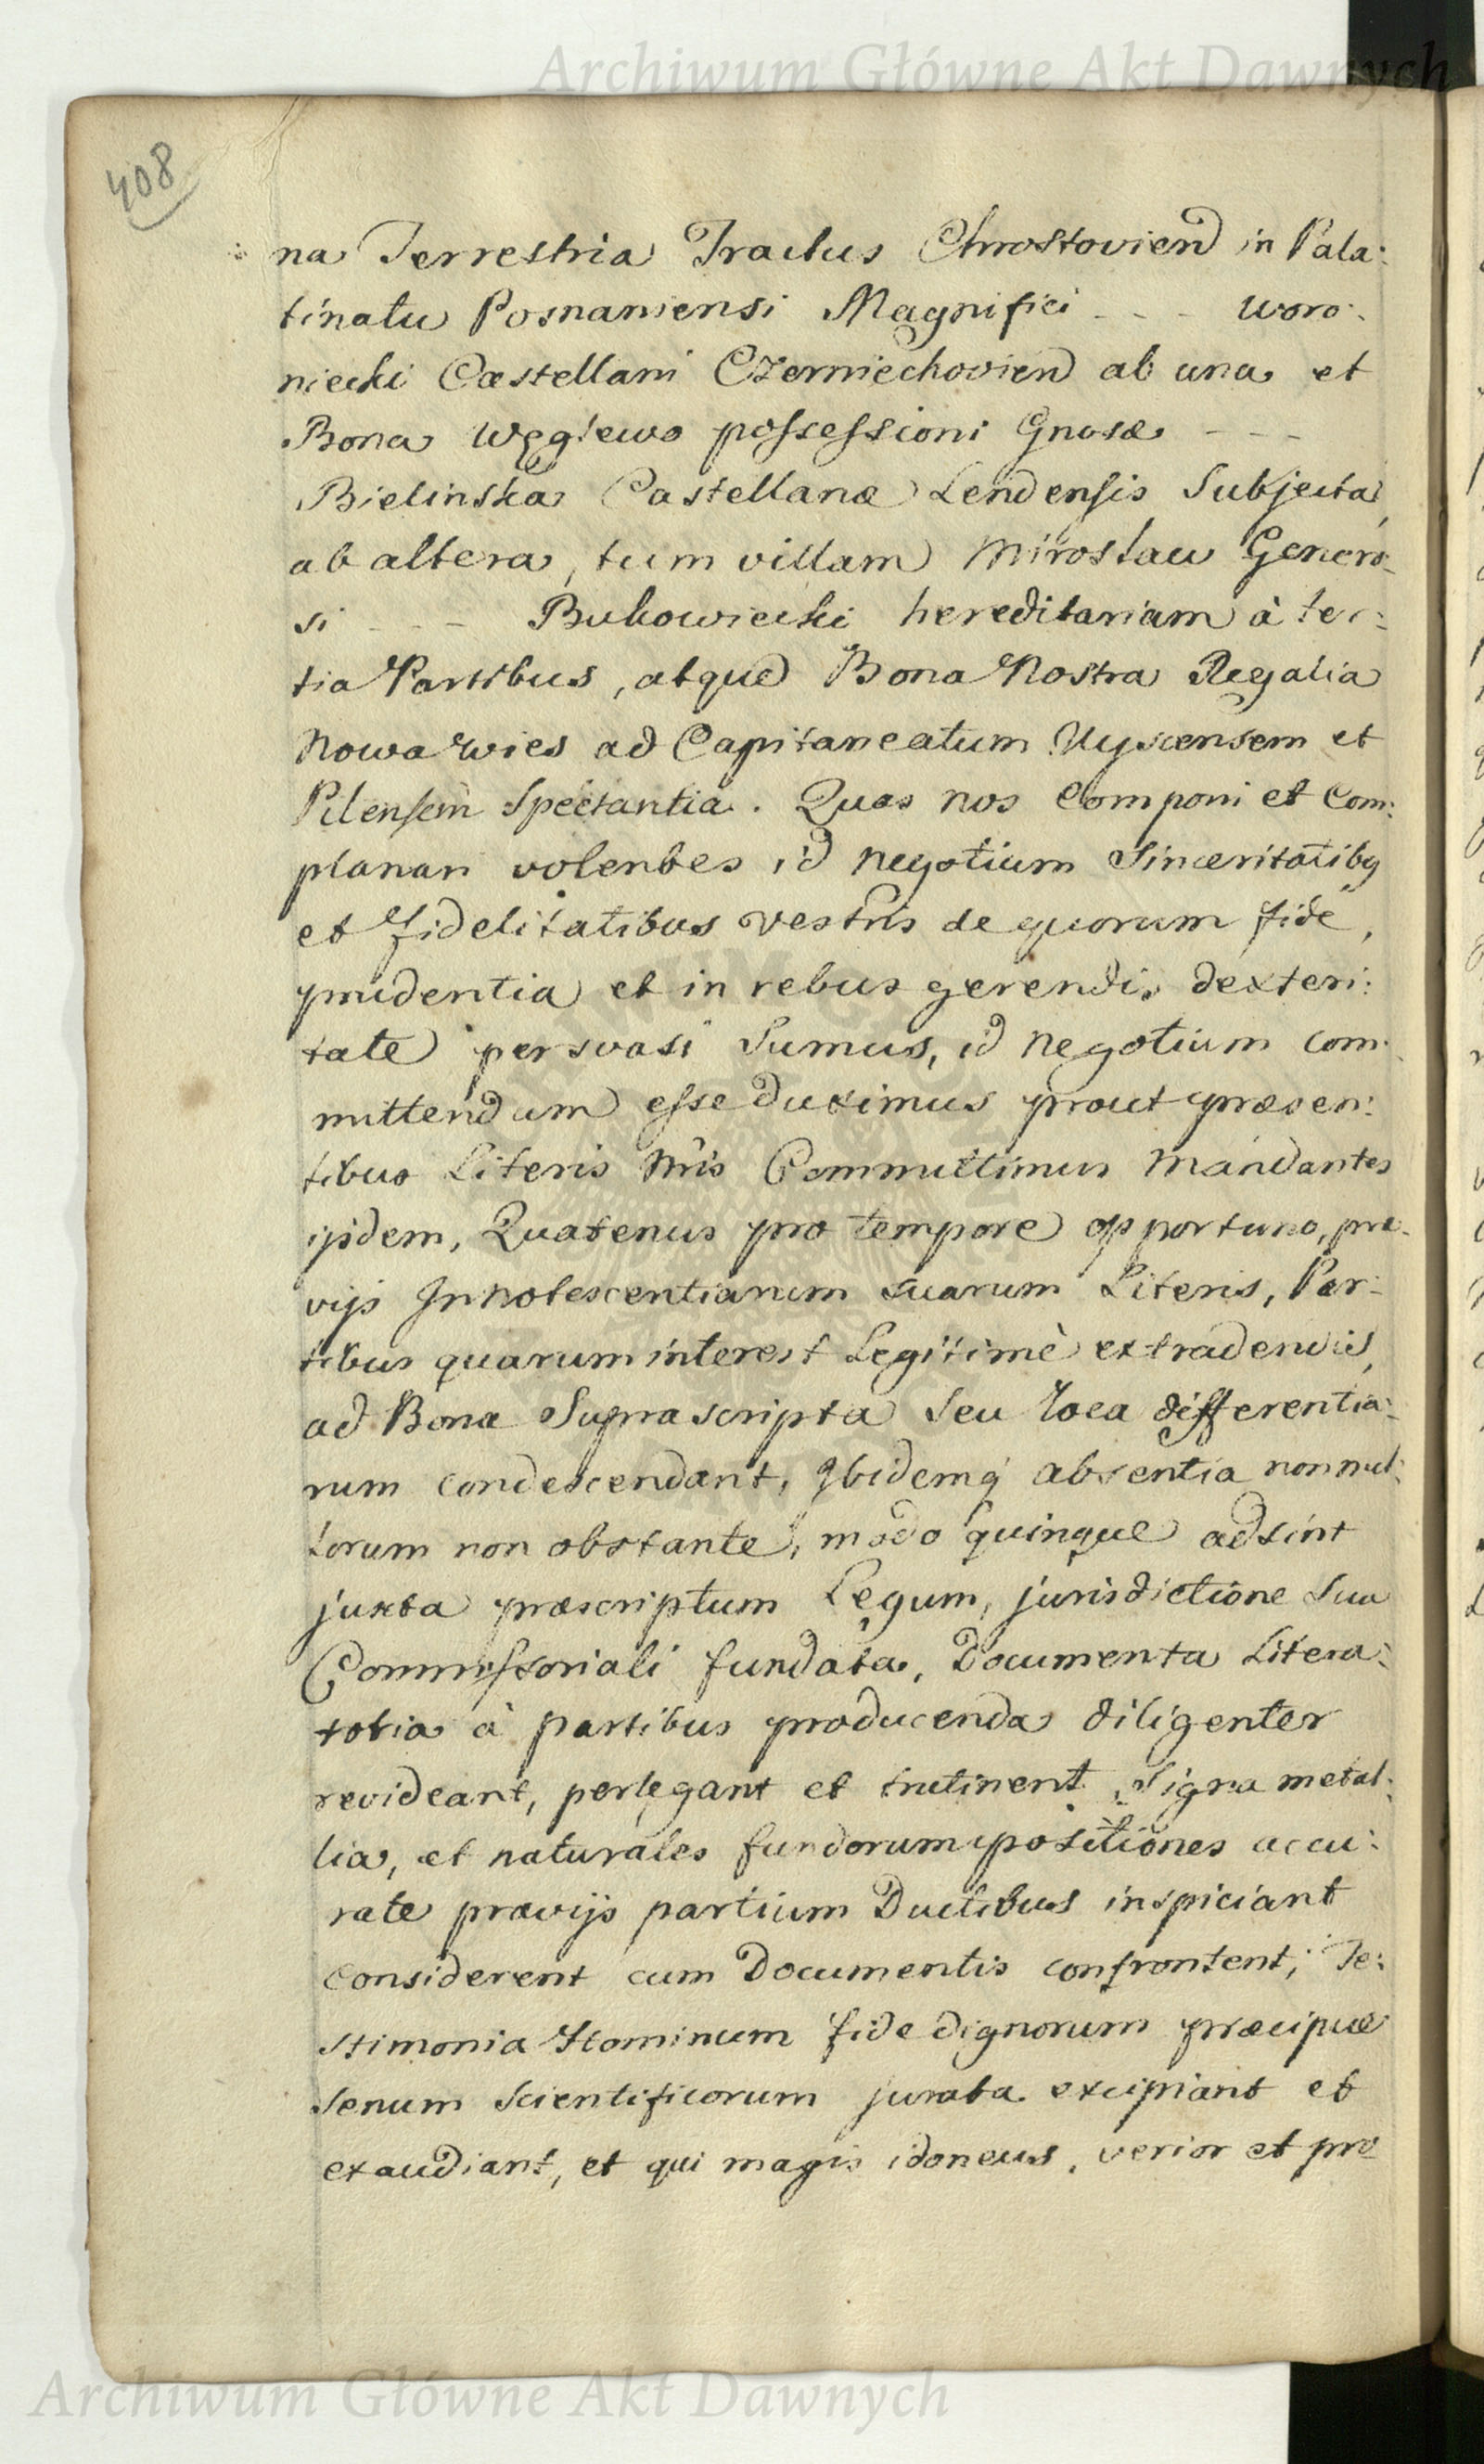 Archiwum Główne Akt Dawnych
408
na Terrestria Tractus Chrostovien in Pala:
tinatu Posnaniensi Magnifici - - - Woro:
niecki Castellani Czerniechovien ab una et
Bona Węglewo possessioni Gnosæ - - -
Bielinska Castellanæ Lendensis Subjecta,
ab altera, tum villam Mirosław Genero:
si - - - Bukowiecki hereditariam à ter:
tia Partibus, atque Bona Nostra Regalia
Nowawies ad Capitaneatum Uyscensem et
Pilensem Spectantia. Quas nos Componi et Com:
planari volentes id negotium Sinceritatibq
et Fidelitatibus vestris de quorum fide,
prudentia et in rebus gerendis dexteri:
tate persvasi Sumus, id negotium com:
mittendum esse duximus prout præsen:
tibus Literis Nris Committimus Mandantes
ijsdem, Quatenus pro tempore opportuno, præ:
vijs Innotescentiarum suarum Literis, Par:
tibus quarum interest Legitimè extradendis,
ad Bona Suprascripta Seu Loca differentia:
rum condescendant, Ibidemq absentia nonnul:
lorum non obstante, modo quinque adsint
juxta præscriptum Legum, jurisdictione Sua
Commissoriali fundata, Documenta Litera:
toria à partibus producenda diligenter
revideant, perlegant et trutinent Signa metal:
lia, et naturales fundorum positiones accu:
rate prævijs partium Ductibus inspiciant
considerent cum Documentis confrontent; Te:
stimonia Hominum fide dignorum præcipue
Senum Scientificorum jurata excipiant et
exaudiant, et qui magis idoneus, verior et pro
Archiwum Główne Akt Dawnych